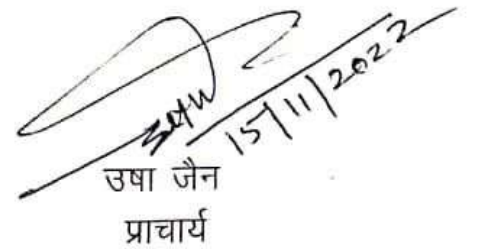 15/11/2022
उषा जैन
प्राचार्य